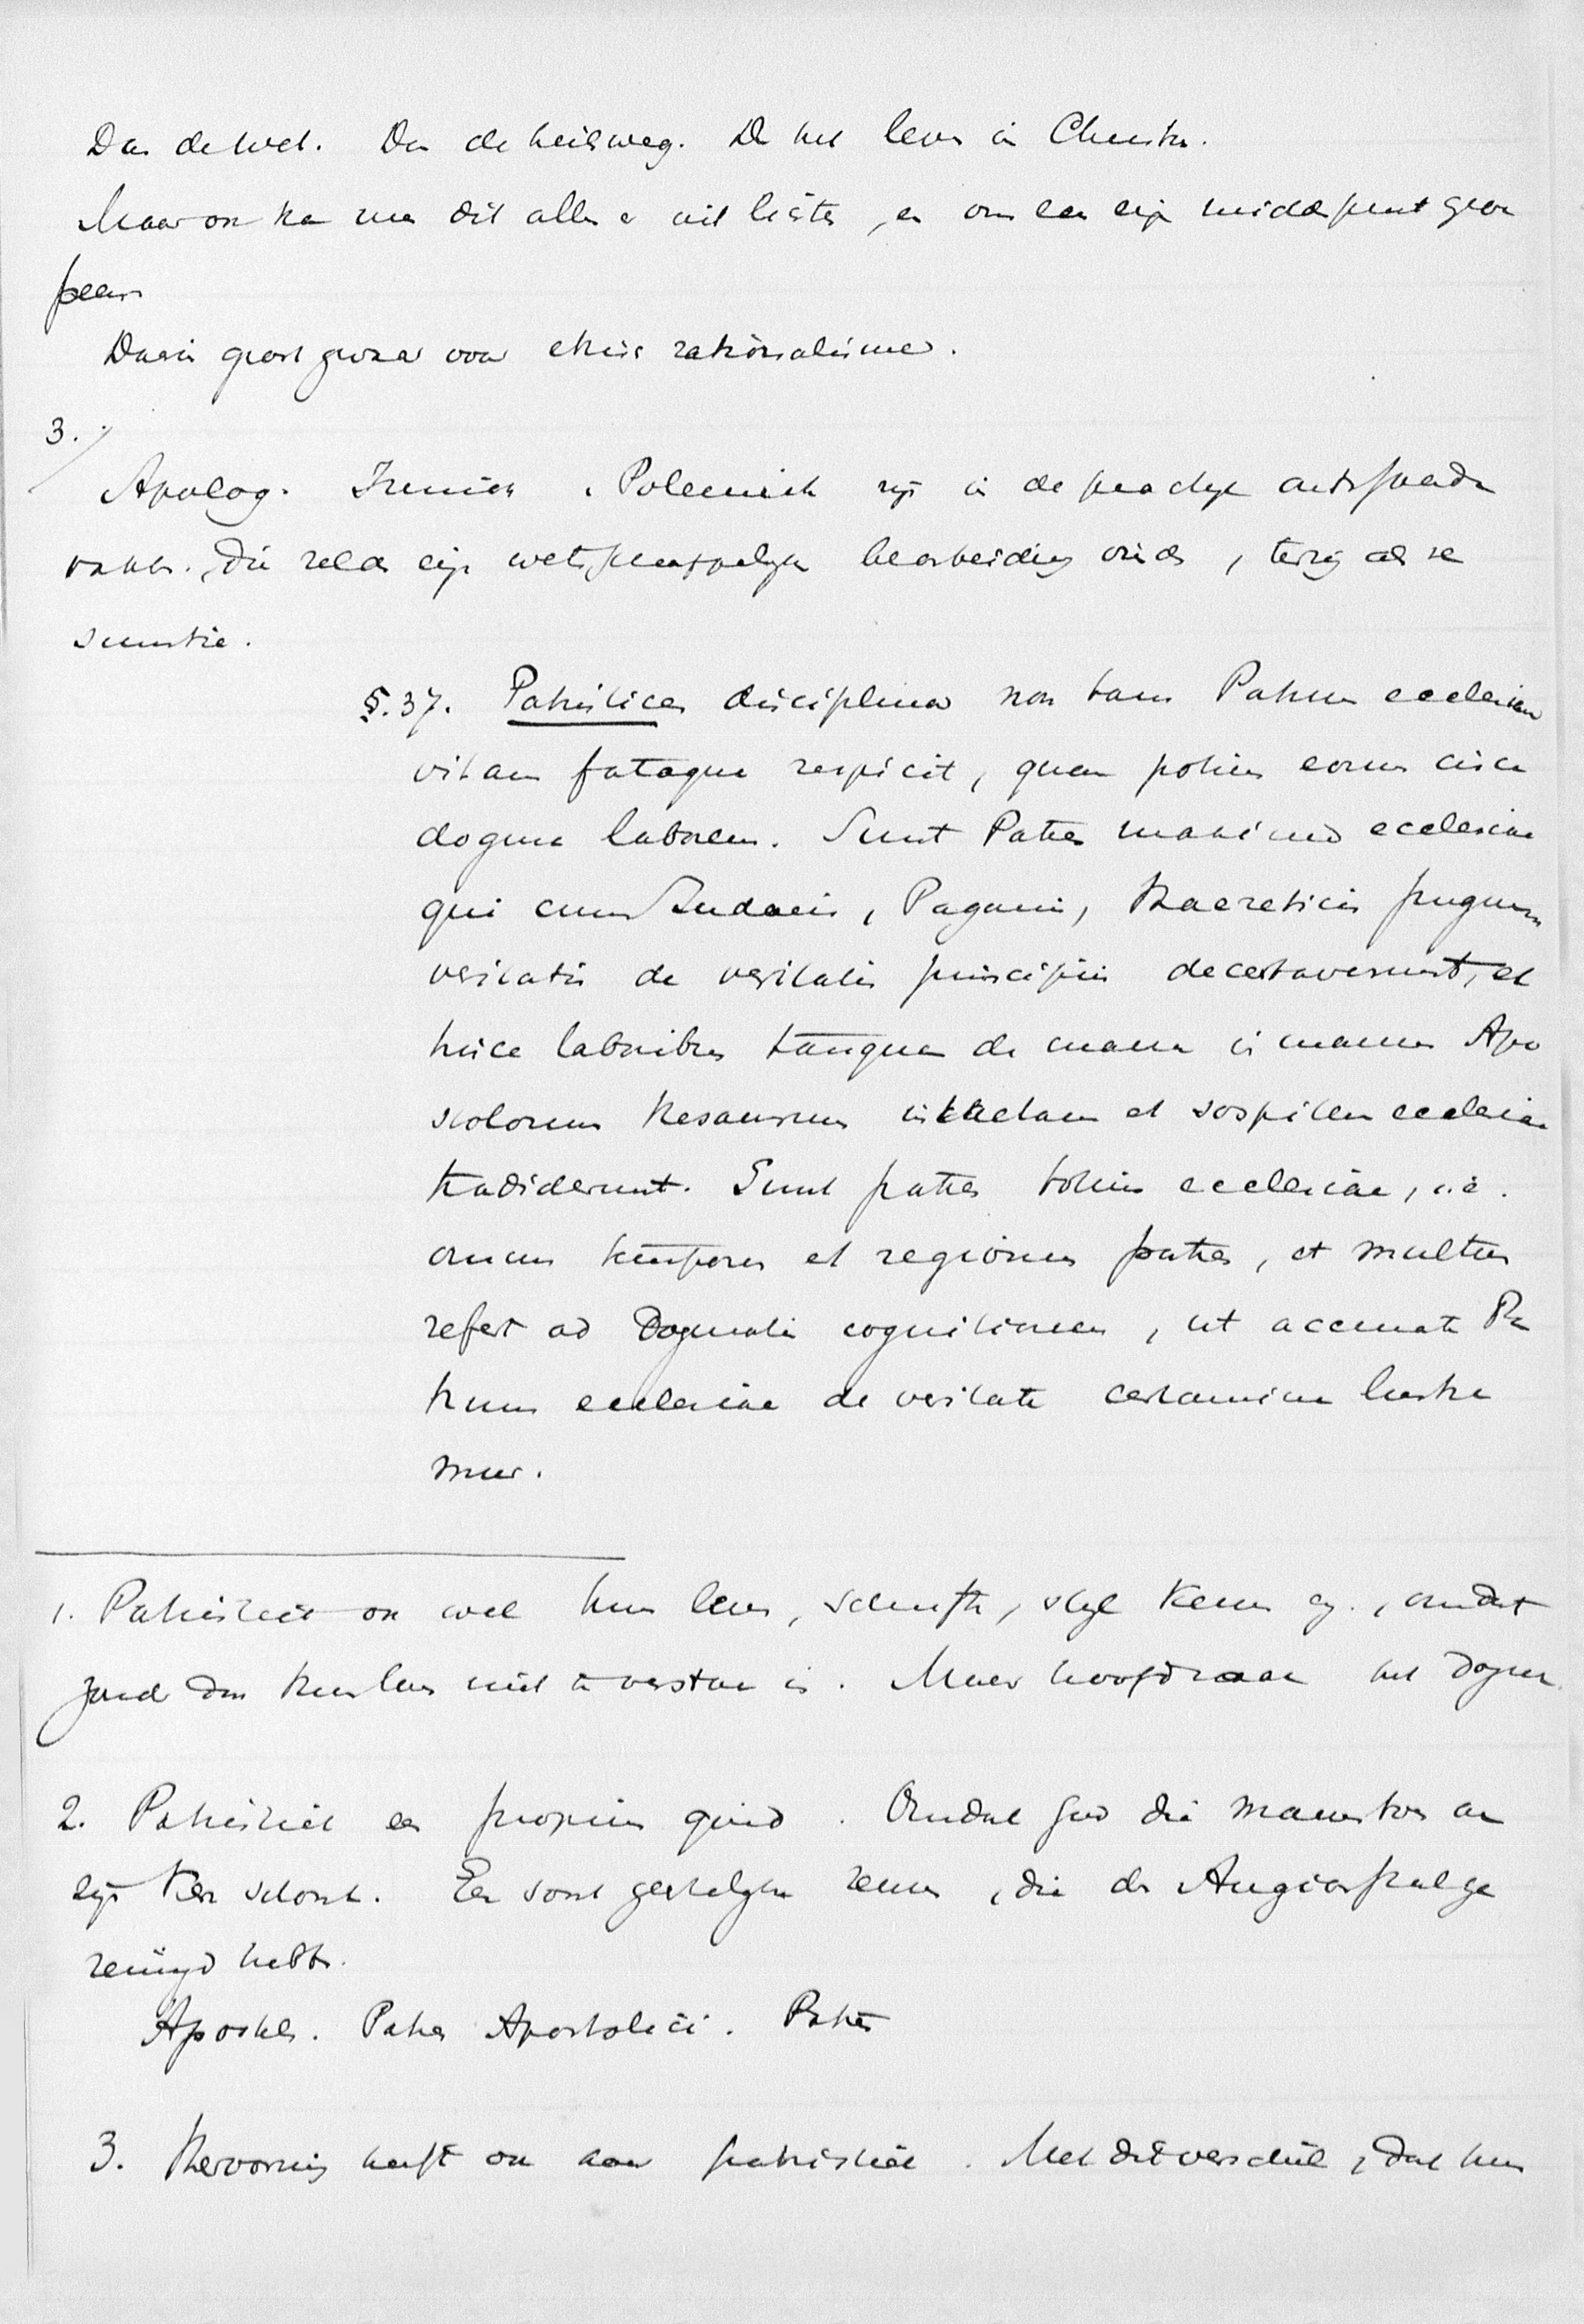 Dan de wet. Dan de heilsweg. Dan het leven in Christus.
Maar ook kan men dit alles er uit lichten, en om een eigen middelpunt groe
peeren
Daarin groot gevaar voor ethisch rationalisme.
3.
Apolog. Ireniek. Polemiek zijn in de practijk
vakken, die zelden eigen wetenschappelijke bearbeiding vinden, terwijl
§.37. Patristices disciplina non tam Patrum ecclesiae
vitam fataque respicit, quam potius eorum circa
dogma laborem. Sunt Patres maximo ecclesiae
qui cum Judaeis, Paganis, Haereticis pugnam
veritatis de veritatis principiis decertaverunt, et
hisce laboribus tanquam de manu in manum Apo
stolorum thesaurum intactam et sospitem ecclesiae
tradiderunt. Sunt patres totius ecclesiae, i.e.
omnium temporum et regionum patres, et multum
refert ad Dogmatis cognitionem, ut accurate Pa
trum ecclesiae de veritate certamina lustre
mur.
1. Patristiek ook wel hun leven, schriften, stijl kennen enz., omdat
zonder dien hun leer niet te verstaan is. Maar hoofdzaak het dogma.
2. Patristiek een proprium quid. Omdat God die mannen toen aan
zijn Kerk schonk. Een soort geestelijke reuzen, die den Augiasstal ge
reinigd hebben.
Apostelen. Patres Apostolici. Patres
3. Hervorming heeft ook haar patristiek. Met dit verschil, dat hun